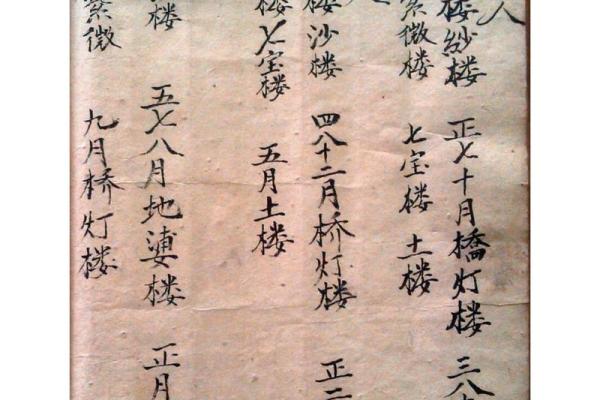 人
楼纱楼 正七十月橋灯楼 三八
紫微楼 七宝楼 土楼
楼沙楼 四八十二月桥灯楼 正二
楼七宝楼 五月土楼
楼 五七八月地婆楼 正月
紫微 九月桥灯楼